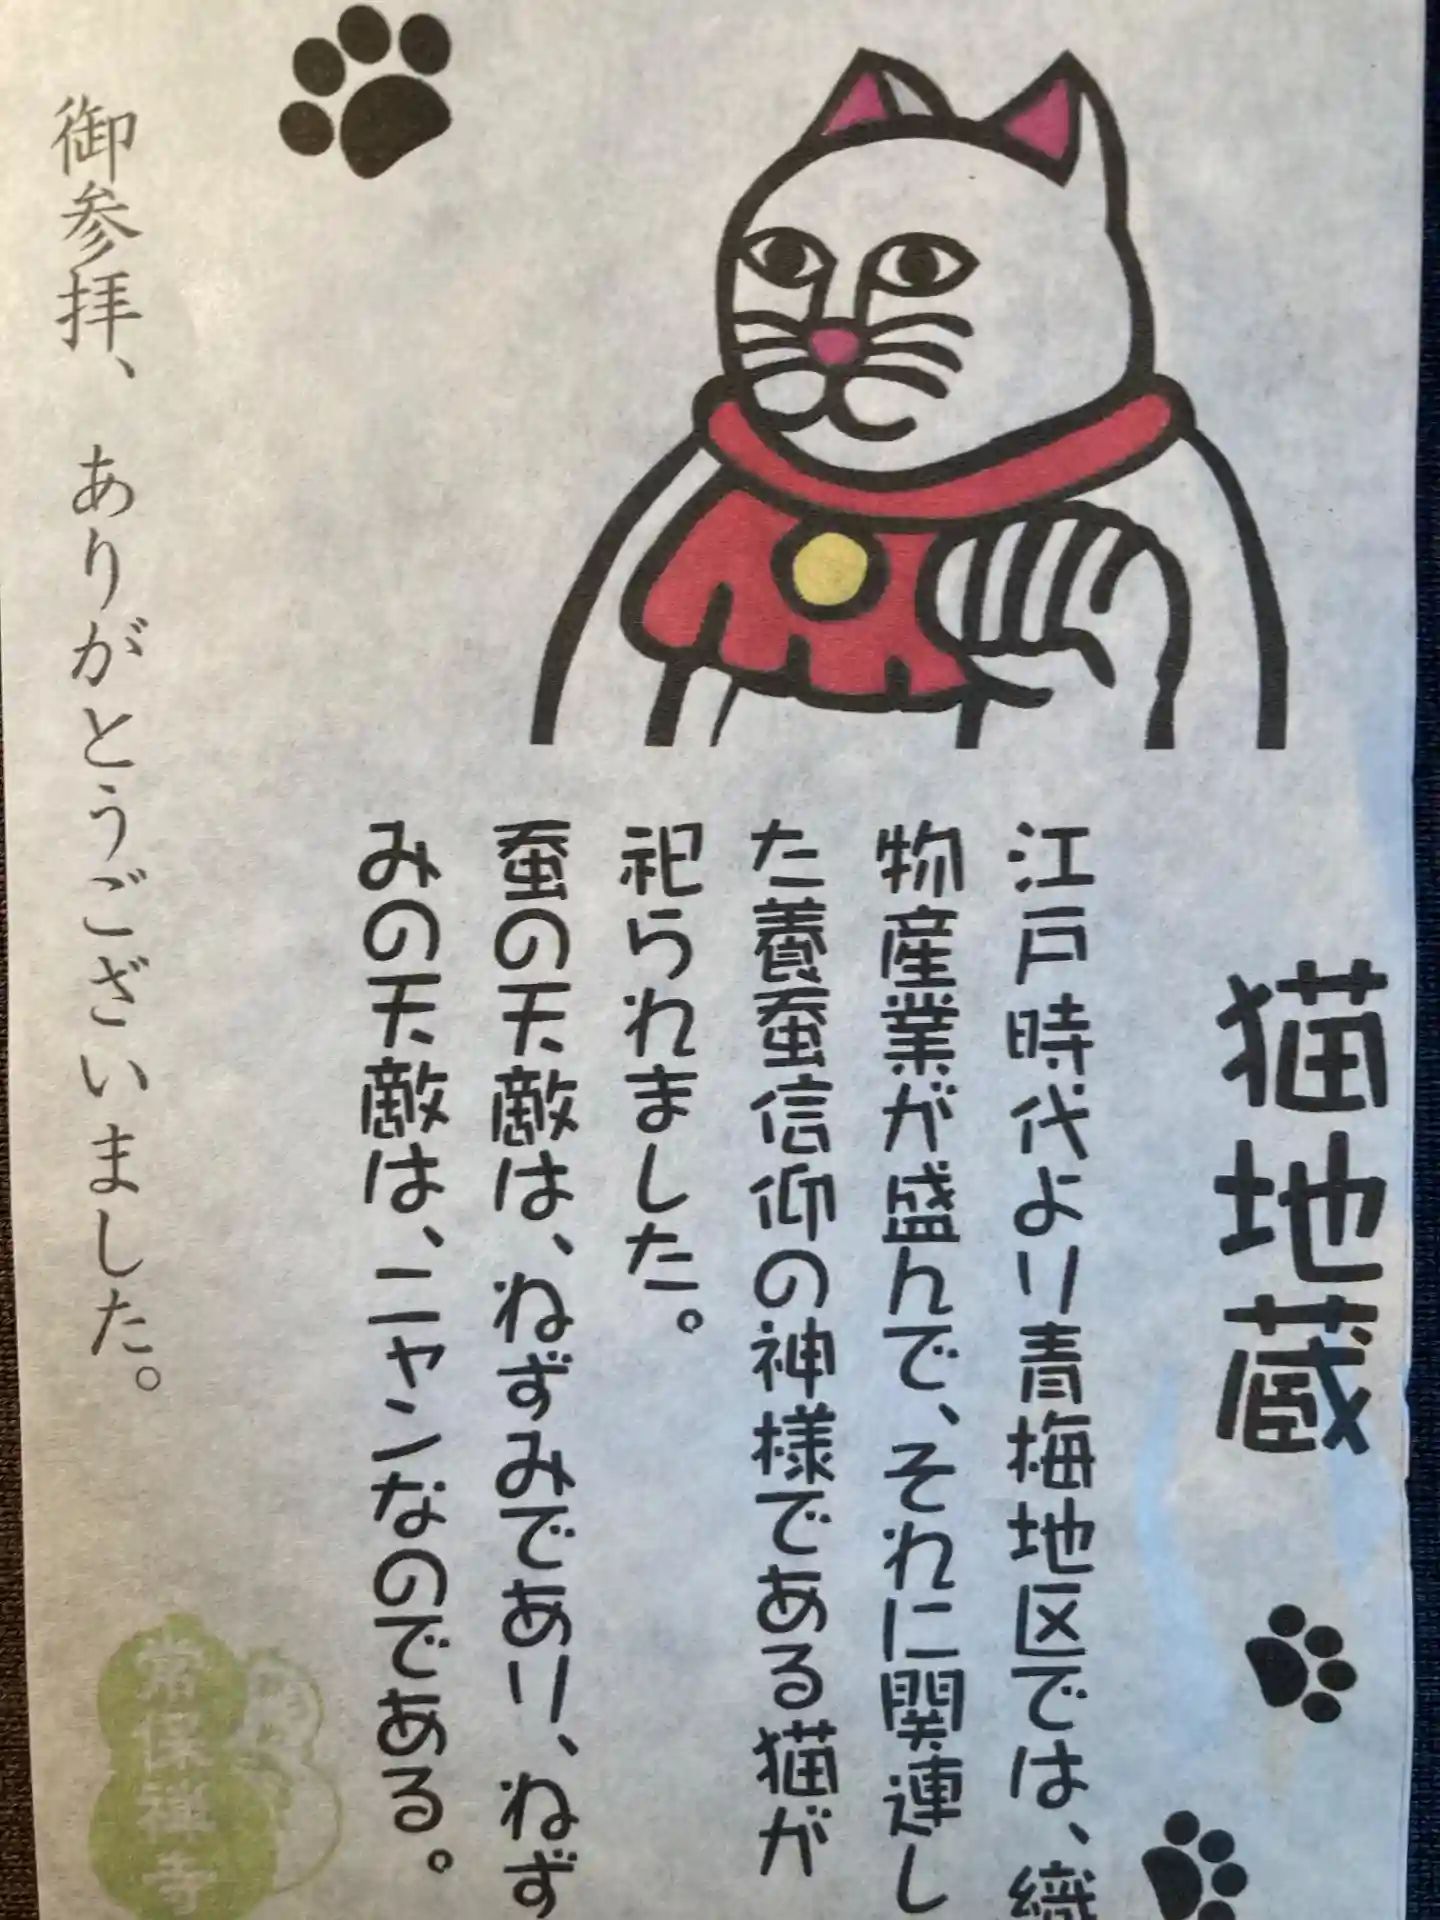 猫地蔵
江戸時代より青梅地区では、織
物産業が盛んで、それに関連し
た養蚕信仰の神様である猫が
祀られました。
蚕の天敵は、ねずみであり、ねず
みの天敵は、ニャンなのである。
御参拝、ありがとうございました。
常保禅寺